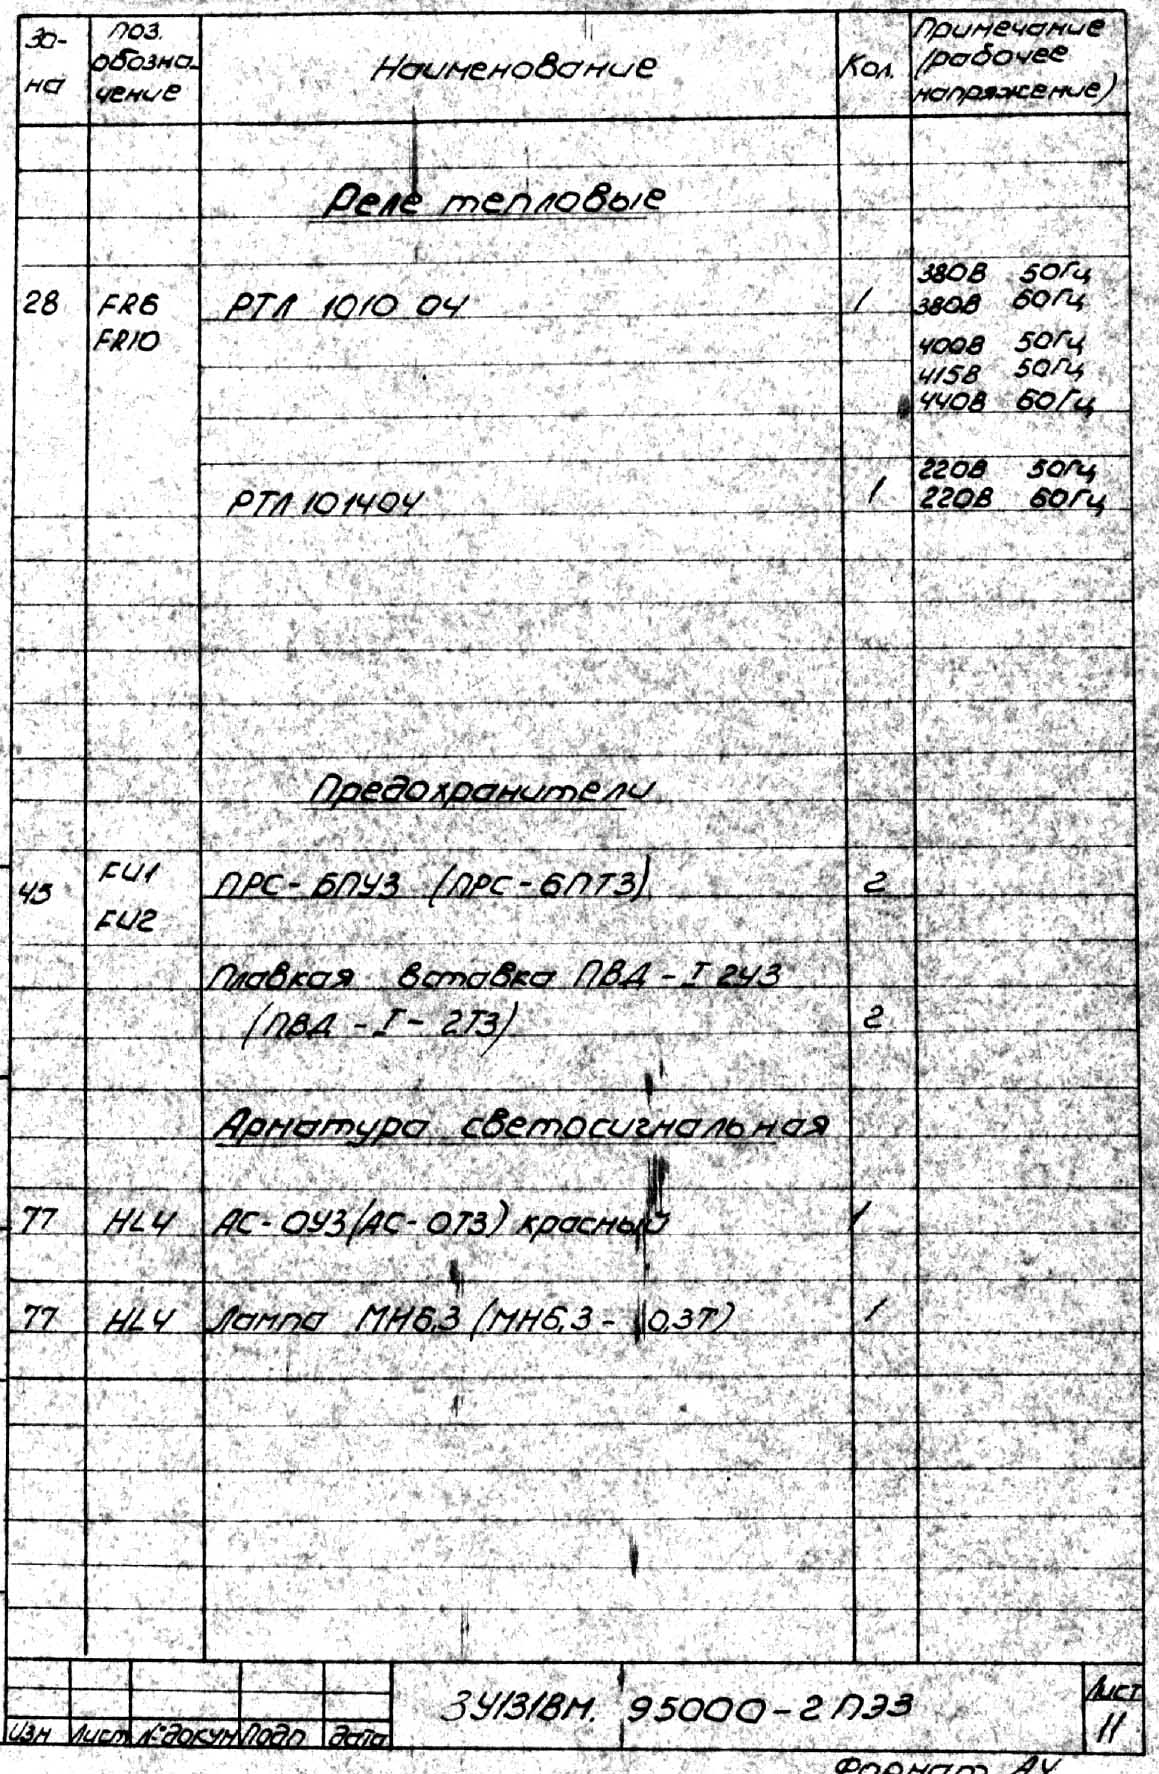 Зо-
на
поз.
обозна-
чение
Наименование
Кол.
Примечание
(рабочее
напряжение)
Реле тепловые
28 FR6 РТЛ 1010 04 1 380В 50Гц
380В 60Гц
FR10 400В 50Гц
415В 50Гц
440В 60Гц
РТЛ 101404 1 220В 50Гц
220В 60Гц
Предохранители
45 FU1 ПРС-6ПУ3 (ПРС-6ПТ3) 2
FU2
Плавкая вставка ПВД-I 2У3
(ПВД-I-2Т3) 2
Арматура светосигнальная
77 HL4 АС-0У3(АС-0Т3) красный 1
77 HL4 Лампа МН6,3 (МН6,3-0,3Т) 1
95000-2 ПЭ3
Лист
11
Изм Лист № докум Подп Дата
Формат А4